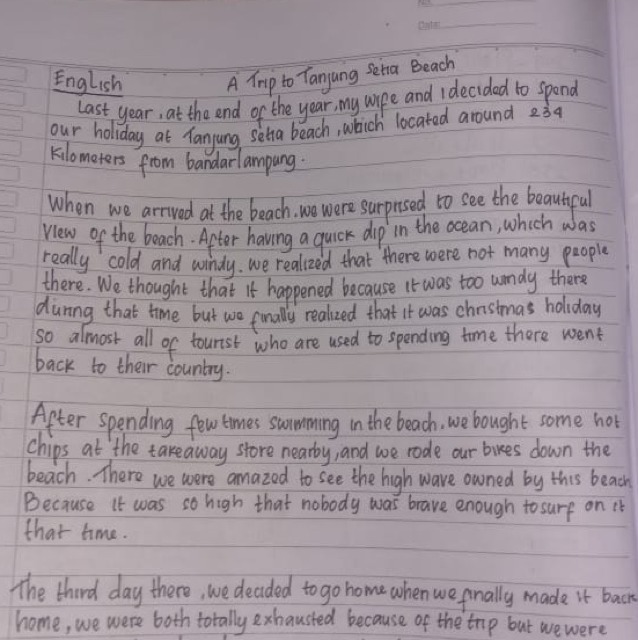 No.
Date:
English A Trip to Tanjung Setia Beach
Last year, at the end of the year, my wife and I decided to spend
our holiday at Tanjung Setia beach, which located around 234
Kilometers from bandarlampung.
When we arrived at the beach. we were surprised to see the beautiful
view of the beach. After having a quick dip in the ocean, which was
really cold and windy. we realized that there were not many people
there. We thought that it happened because it was too windy there
during that time but we finally realized that it was christmas holiday
so almost all of tourist who are used to spending time there went
back to their country.
After spending few times swimming in the beach, we bought some hot
chips at the takeaway store nearby, and we rode our bikes down the
beach. There we were amazed to see the high wave owned by this beach
Because it was so high that nobody was brave enough to surf on it
that time.
The third day there, we decided to go home when we finally made it back
home, we were both totally exhausted because of the trip but we were